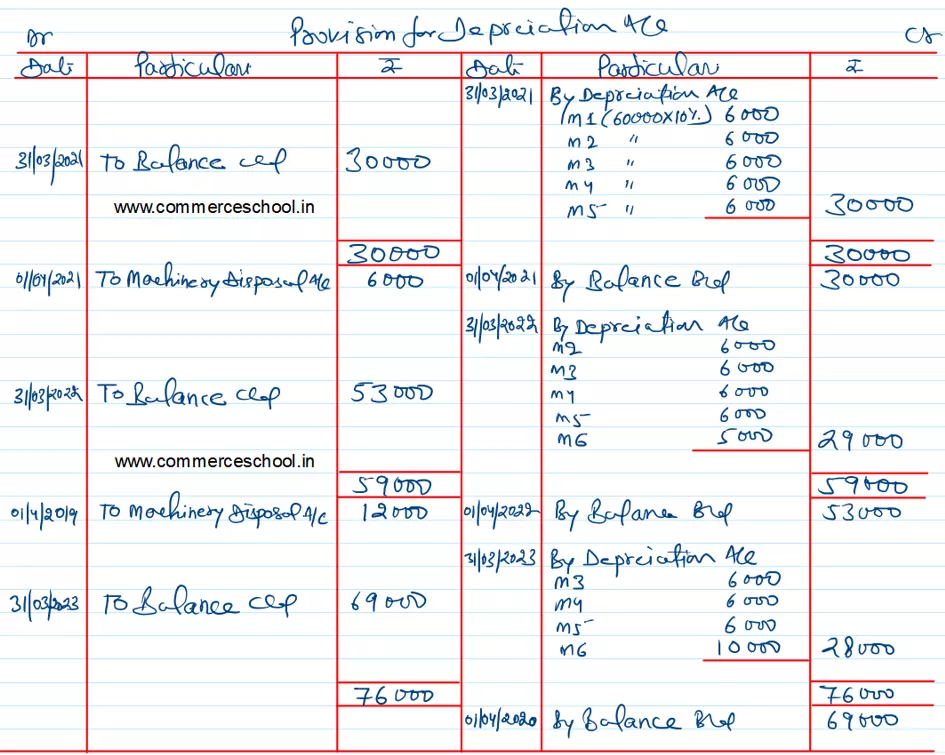 Provision for Depreciation A/c
Dr Cr
Date Particulars ₹ Date Particulars ₹
31/03/2021 By Depreciation A/c
M1 (60000X10%) 6000
M2 " 6000
31/03/2021 To Balance c/d 30000 M3 " 6000
M4 " 6000
www.commerceschool.in M5 " 6000 30000
30000 30000
01/04/2021 To Machinery Disposal A/c 6000 01/04/2021 By Balance B/d 30000
31/03/2022 By Depreciation A/c
M2 6000
M3 6000
31/03/2022 To Balance c/d 53000 M4 6000
M5 6000
M6 5000 29000
www.commerceschool.in
59000 59000
01/4/2019 To Machinery Disposal A/c 12000 01/04/2022 By Balance B/d 53000
31/03/2023 By Depreciation A/c
M3 6000
31/03/2023 To Balance c/d 69000 M4 6000
M5 6000
M6 10000 28000
76000 76000
01/04/2020 By Balance B/d 69000